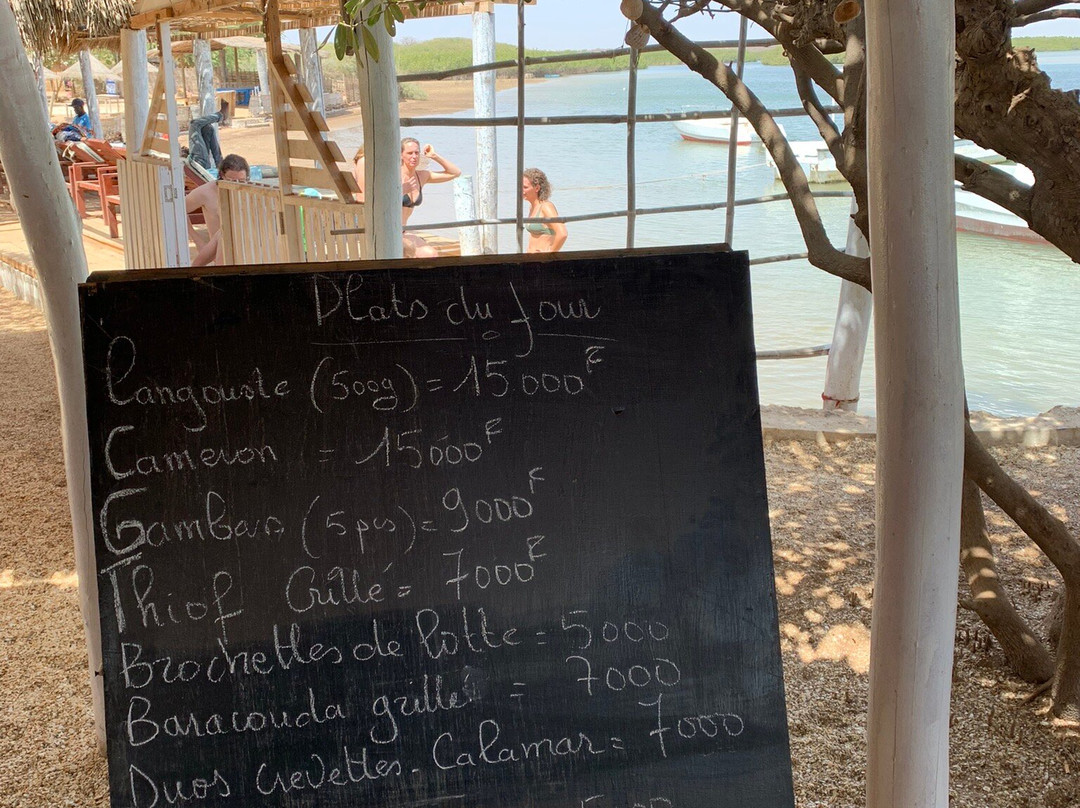 Plats du Jour
Langouste (500g) = 15.000F
Cameron = 15000F
Gambas (5pcs) = 9000F
Thiof Grillé = 7000F
Brochettes de Lotte = 5000
Baracouda grillé = 7000
Duos crevettes - Calamar = 7000